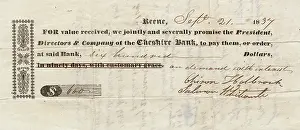 Keene, Sept. 21 1837
FOR value received, we jointly and severally promise the President,
Directors & Company of the Cheshire Bank, to pay them, or order,
at said Bank, six hundred Dollars,
in ninety days, with customary grace. on demand with interest
$ 600